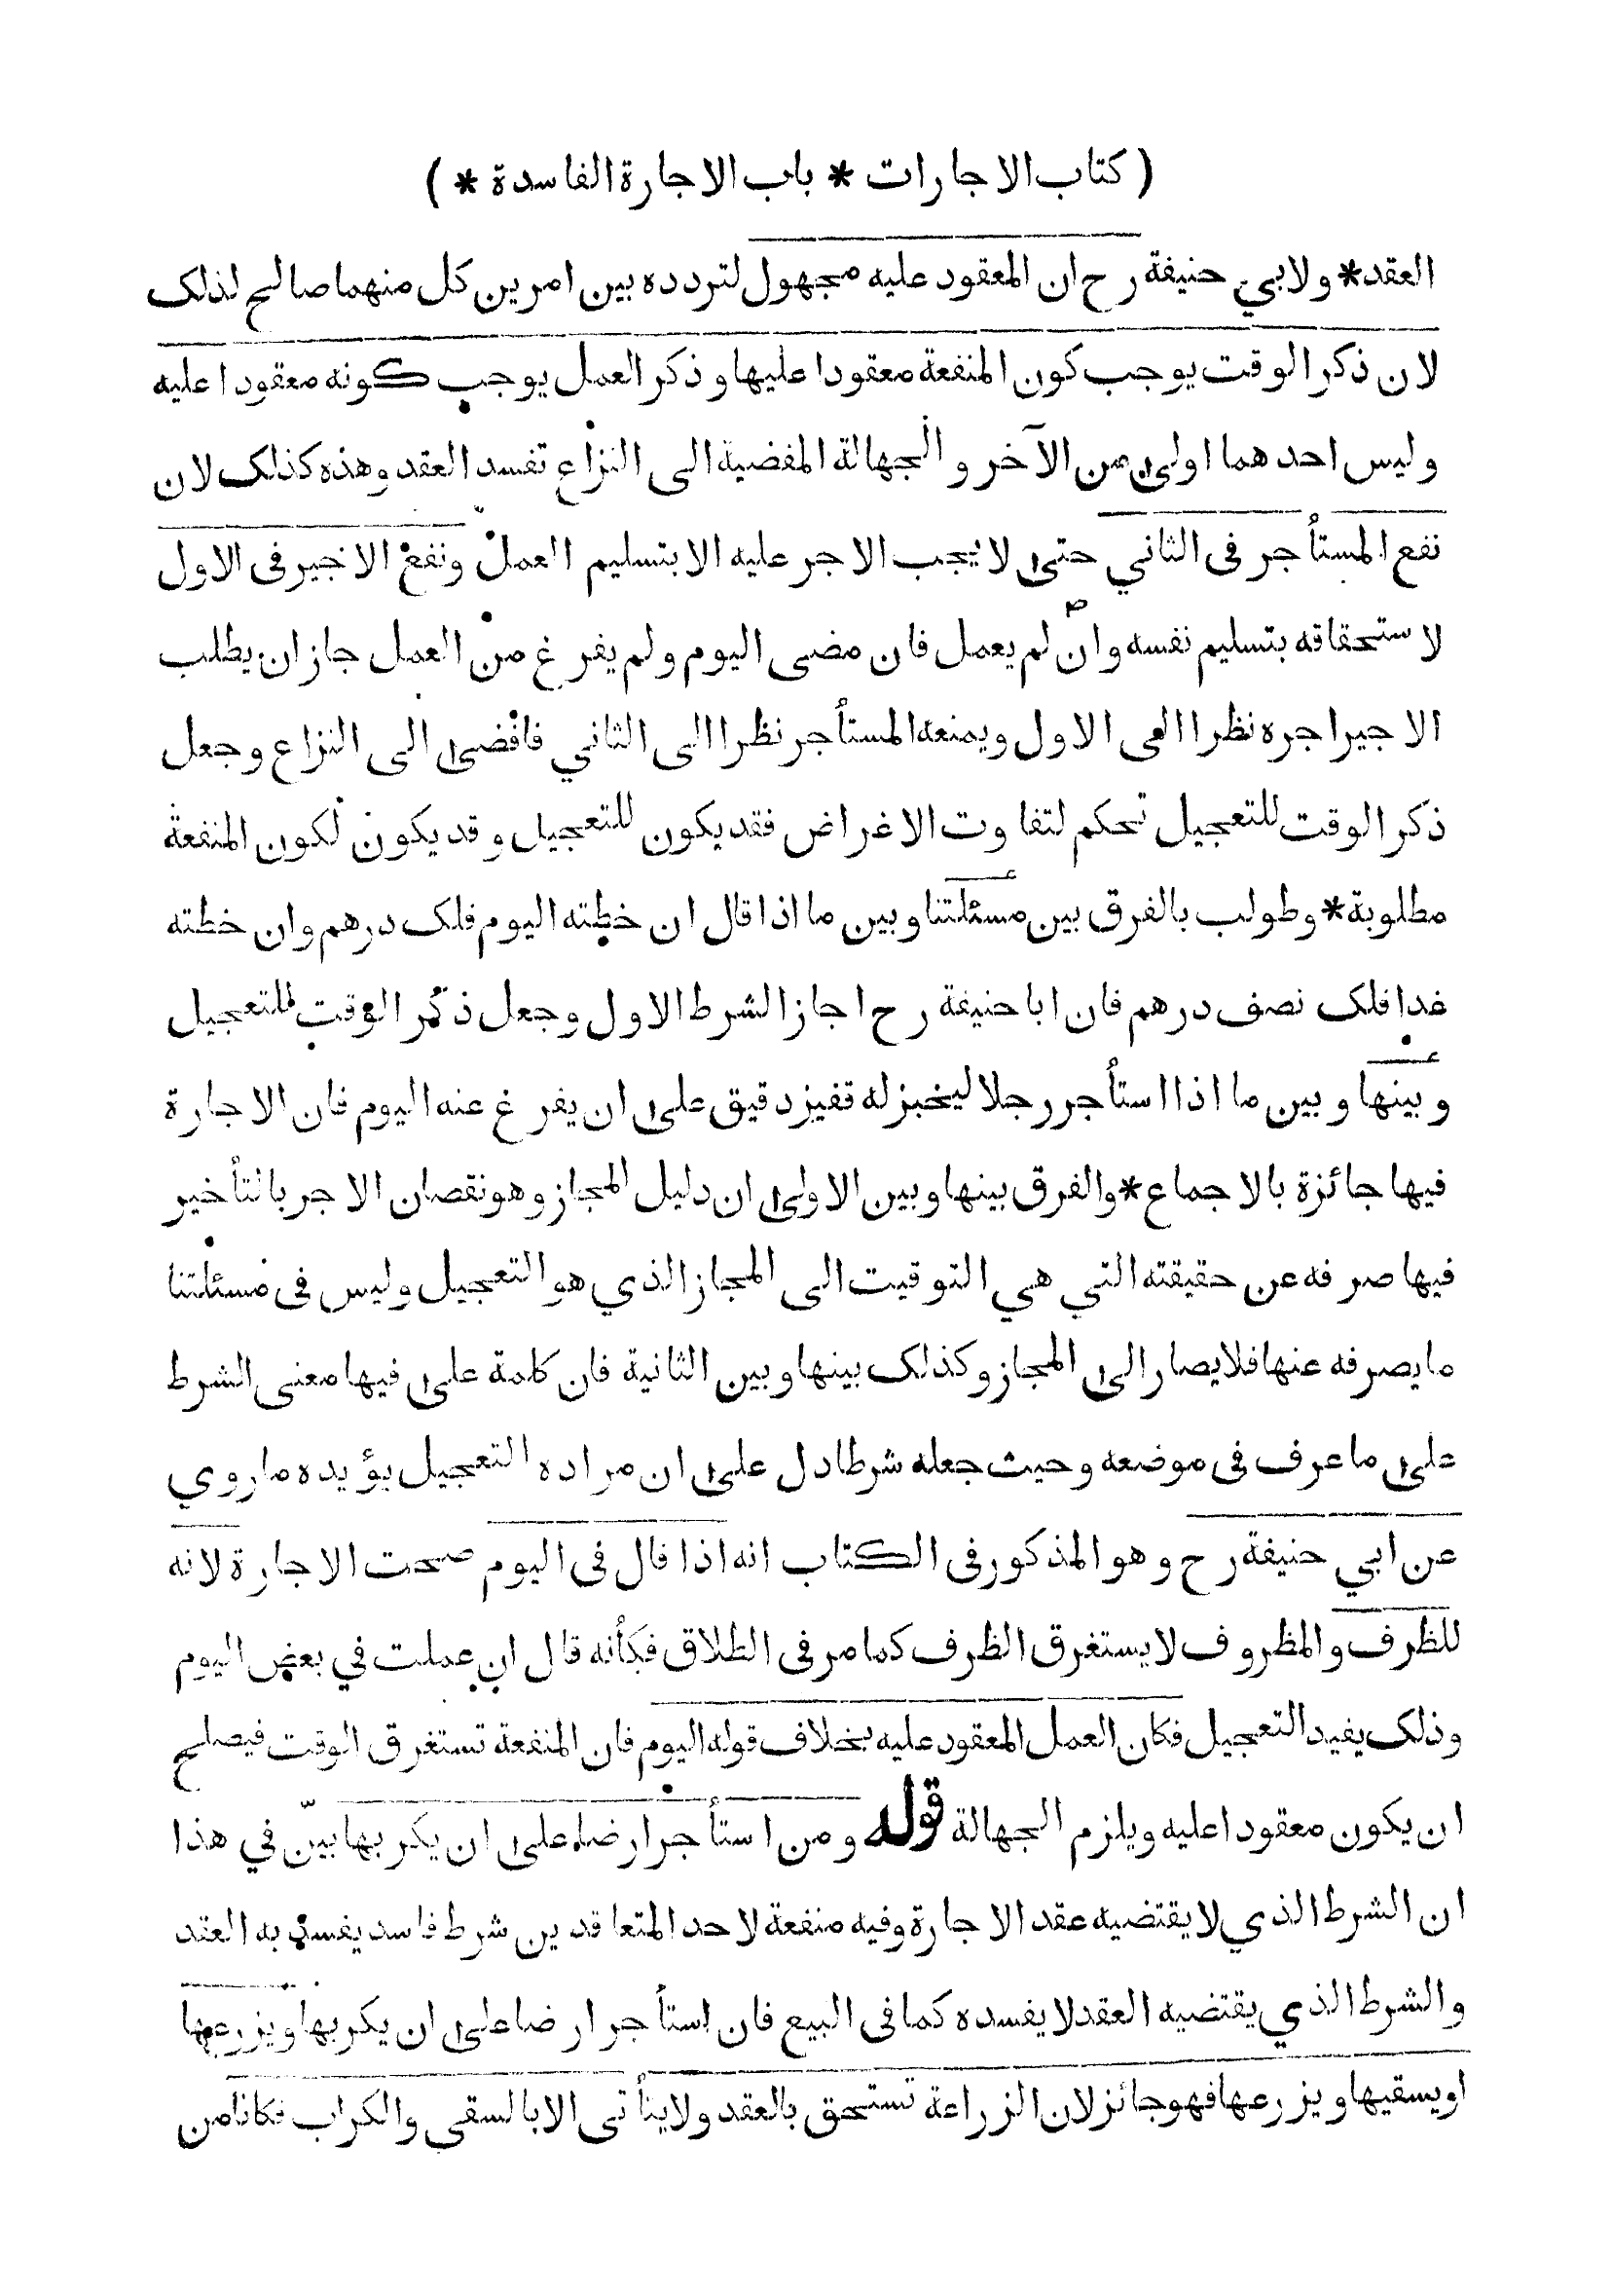 ( كتاب الاجارات * باب الاجارة الفاسدة * )
العقد * ولابي حنيفة رح ان المعقود عليه مجهول لتردده بين امرين كل منهما صالح لذلك
لان ذكر الوقت يوجب كون المنفعة معقودا عليها وذكر العمل يوجب كونه معقودا عليه
وليس احدهما اولى من الآخر والجهالة المفضية الى النزاع تفسد العقد وهذه كذلك لان
نفع المستأجر فى الثاني حتى لا يجب الاجر عليه الا بتسليم العمل ونفع الاجير فى الاول
لاستحقاقه بتسليم نفسه وان لم يعمل فان مضى اليوم ولم يفرغ من العمل جاز ان يطلب
الاجير اجره نظرا الى الاول ويمنعه المستأجر نظرا الى الثاني فافضى الى النزاع وجعل
ذكر الوقت للتعجيل تحكم لتفاوت الاغراض فقد يكون للتعجيل وقد يكون لكون المنفعة
مطلوبة * وطولب بالفرق بين مسئلتنا وبين ما اذا قال ان خطته اليوم فلك درهم وان خطته
غدا فلك نصف درهم فان ابا حنيفة رح اجاز الشرط الاول وجعل ذكر الوقت للتعجيل
وبينها وبين ما اذا استأجر رجلا ليخبز له قفيز دقيق على ان يفرغ عنه اليوم فان الاجارة
فيها جائزة بالاجماع * والفرق بينها وبين الاولى ان دليل المجاز وهو نقصان الاجر بالتأخير
فيها صرفه عن حقيقته التي هي التوقيت الى المجاز الذي هو التعجيل وليس فى مسئلتنا
ما يصرفه عنها فلا يصار الى المجاز وكذلك بينها وبين الثانية فان كلمة على فيها معنى الشرط
على ما عرف فى موضعه وحيث جعله شرطا دل على ان مراده التعجيل يؤيده ما روي
عن ابي حنيفة رح وهو المذكور فى الكتاب انه اذا قال فى اليوم صحت الاجارة لانه
للظرف والمظروف لا يستغرق الظرف كما مر فى الطلاق فكأنه قال ان عملت في بعض اليوم
وذلك يفيد التعجيل فكان العمل المعقود عليه بخلاف قوله اليوم فان المنفعة تستغرق الوقت فيصلح
ان يكون معقودا عليه ويلزم الجهالة قوله ومن استأجر ارضا على ان يكربها بيّن في هذا
ان الشرط الذي لا يقتضيه عقد الاجارة وفيه منفعة لاحد المتعاقدين شرط فاسد يفسد به العقد
والشرط الذي يقتضيه العقد لا يفسده كما فى البيع فان استأجر ارضا على ان يكربها ويزرعها
او يسقيها ويزرعها فهو جائز لان الزراعة تستحق بالعقد ولا يتأتى الا بالسقي والكراب فكانا من